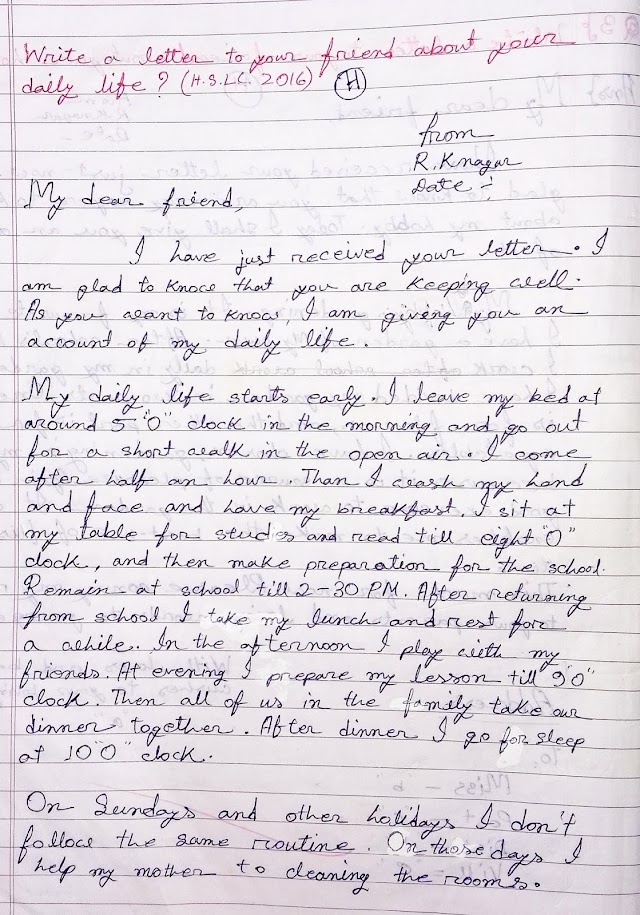 Write a letter to your friend about your
daily life? (H.S.L.C. 2016) (H)
from
R.Knagar
Date -:
My dear friend,
I have just received your letter. I
am glad to know that you are keeping well.
As you want to know, I am giving you an
account of my daily life.
My daily life starts early. I leave my bed at
around 5 "0" clock in the morning and go out
for a short walk in the open air. I come
after half an hour. Than I wash my hand
and face and have my breakfast. I sit at
my table for studies and read till eight "0"
clock, and then make preparation for the school.
Remain at school till 2-30 PM. After returning
from school I take my lunch and rest for
a while. In the afternoon I play with my
friends. At evening I prepare my lesson till 9"0"
clock. Then all of us in the family take our
dinner together. After dinner I go for sleep
at 10"0" clock.
On Sundays and other holidays I don't
follow the same routine. On those days I
help my mother to cleaning the rooms.